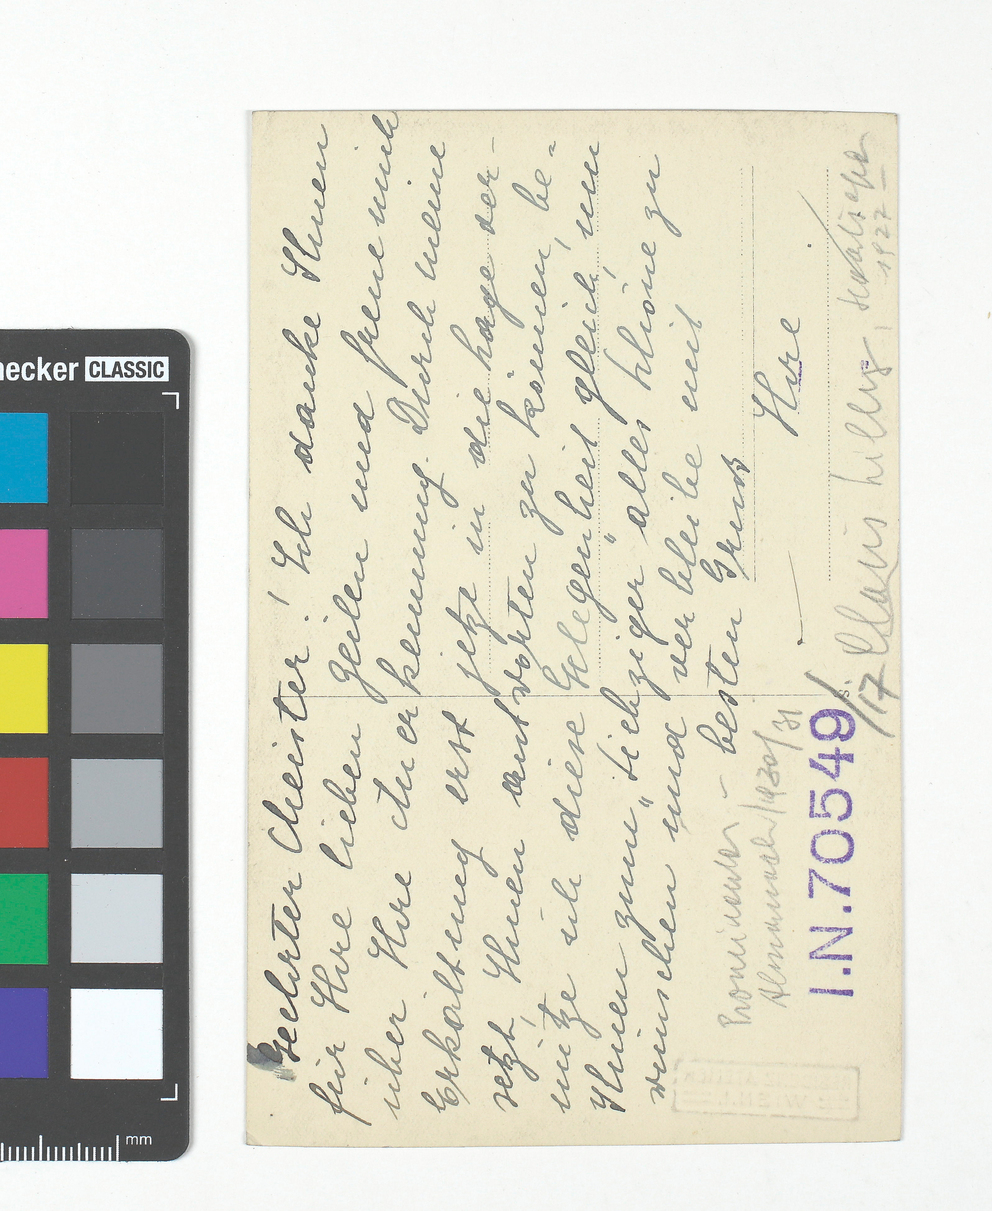 Geehrter Meister! Ich danke Ihnen
für Ihre lieben Zeilen und freue mich
über Ihre Anerkennung. Durch meine
Erkältung erst jetzt in die Lage ver-
setzt, Ihnen antworten zu können, be-
nütze ich diese Gelegenheit gleich, um
Ihnen zum "Siebziger" alles Schöne zu
wünschen und verbleibe mit
besten Gruß
Ihre
Prominenten-
Almanach 1930/31
I.N. 70549
/17
1922
necker CLASSIC
mm